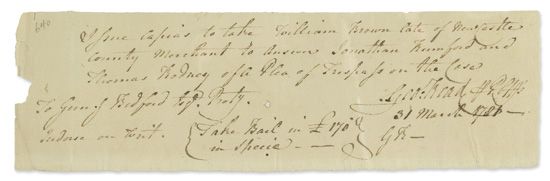 Issue Capias to take William Brown late of Newcastle
County Merchant to Answer Jonathan Rumford and
Thomas Rodney of a Plea of Trespass on the Case
To Gunn.g Bedford Esqr. Proty.
Geo: Read
31 March 1781
Indorse on Writ.
Take Bail in £ 170
in Specie
GR